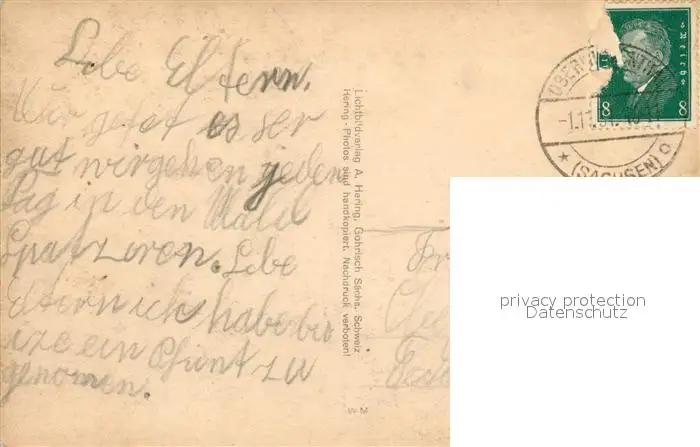 Lebe Eltern.
Mir jetzt es ser
gut wir gehen jeden
Tag in den Wald
Spatzeren. Lebe
Eltern ich habe bei
ize ein Pfunt zu
genomen.
Lichtbildverlag A. Hering, Gohrisch Sächs. Schweiz
Hering-Photos sind handkopiert. Nachdruck verboten!
Reich
8 8
(SACHSEN)
privacy protection
Datenschutz